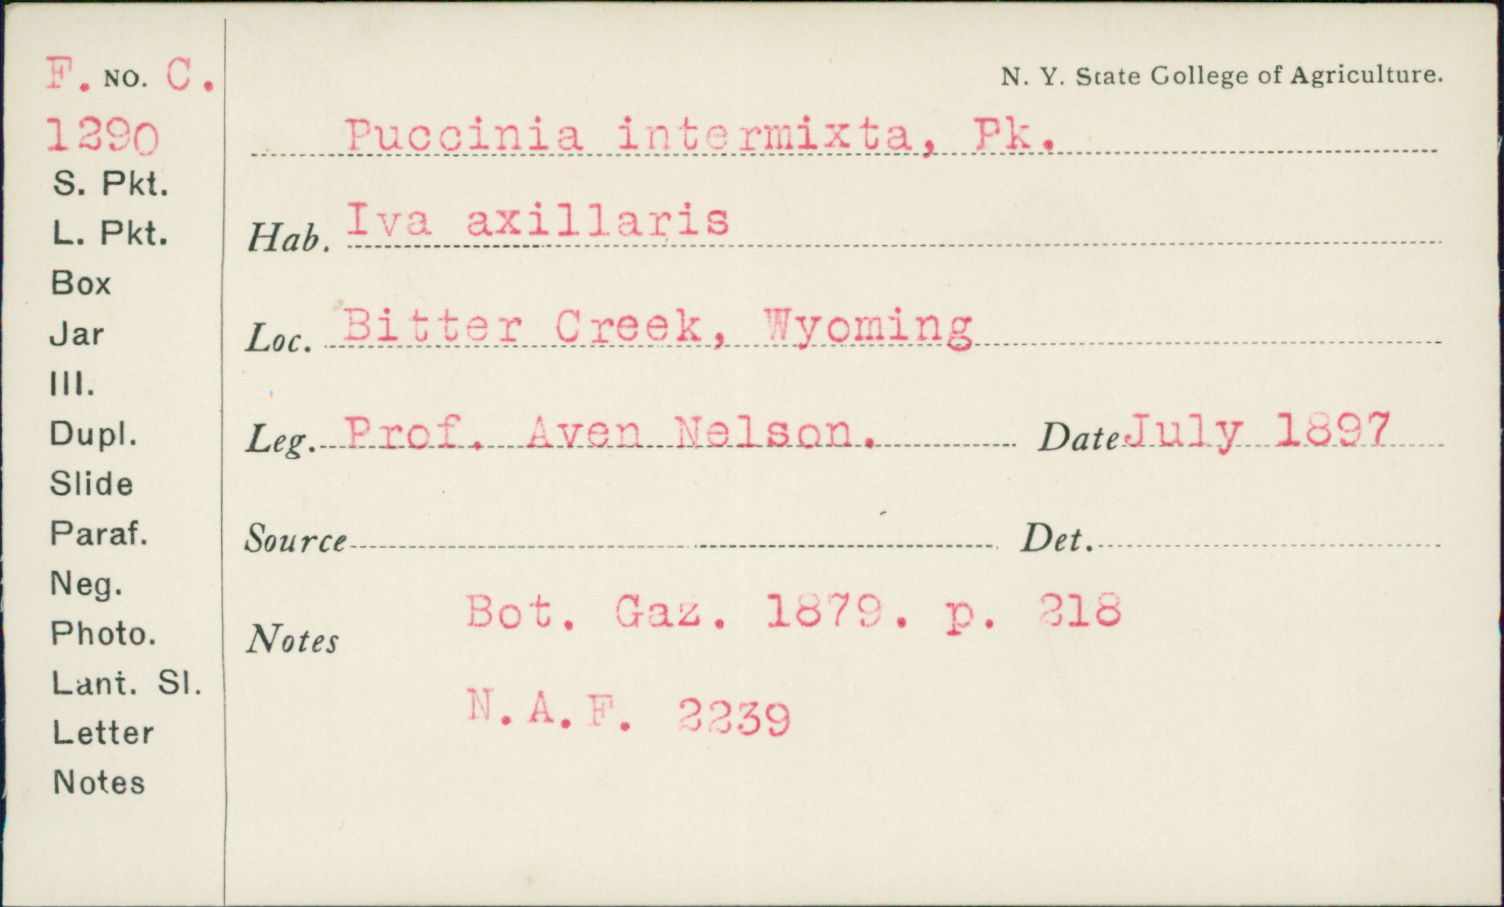 F. NO. C.
1290
S. Pkt.
L. Pkt.
Box
Jar
Ill.
Dupl.
Slide
Paraf.
Neg.
Photo.
Lant. Sl.
Letter
Notes
N. Y. State College of Agriculture.
Puccinia intermixta, Pk.
Hab. Iva axillaris
Loc. Bitter Creek, Wyoming
Leg. Prof. Aven Nelson. Date July 1897
Source Det.
Notes Bot. Gaz. 1879. p. 218
N.A.F. 2239